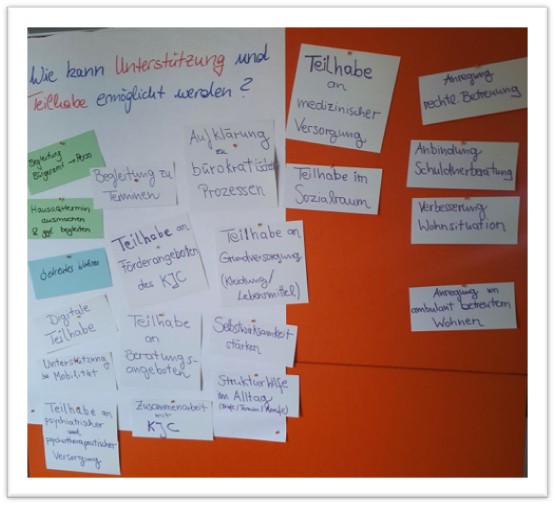 Wie kann Unterstützung und
Teilhabe ermöglicht werden?
Begleitung
Bürgeramt → Perso
Hausarzttermin
ausmachen
& ggf. begleiten
Begleitung zu
Terminen
Aufklärung
zu
bürokratischen
Prozessen
Teilhabe an
Förderangeboten
des KJC
Teilhabe an
Grundversorgung
(Kleidung/
Lebensmittel)
Digitale
Teilhabe
Teilhabe
an
Beratungs-
angeboten
Selbstwirksamkeit
stärken
Unterstützung
Mobilität
Strukturhilfe
im Alltag
Zusammenarbeit
mit
KJC
Teilhabe an
psychiatrischer
und
psychotherapeutischer
Versorgung
Teilhabe
an
medizinischer
Versorgung
Teilhabe im
Sozialraum
Anregung
rechtl. Betreuung
Anbindung
Schuldnerberatung
Verbesserung
Wohnsituation
Anregung von
ambulant betreutem
Wohnen